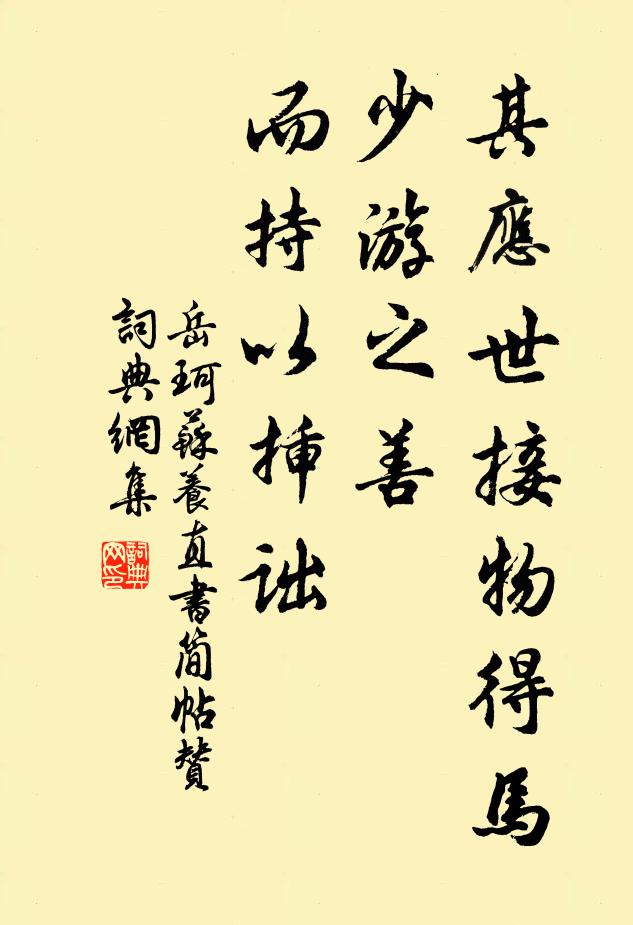 其應世接物得馬
少游之善
而持以揷詘
岳珂蘇養直書簡帖贊
詞典網集
詞典网印